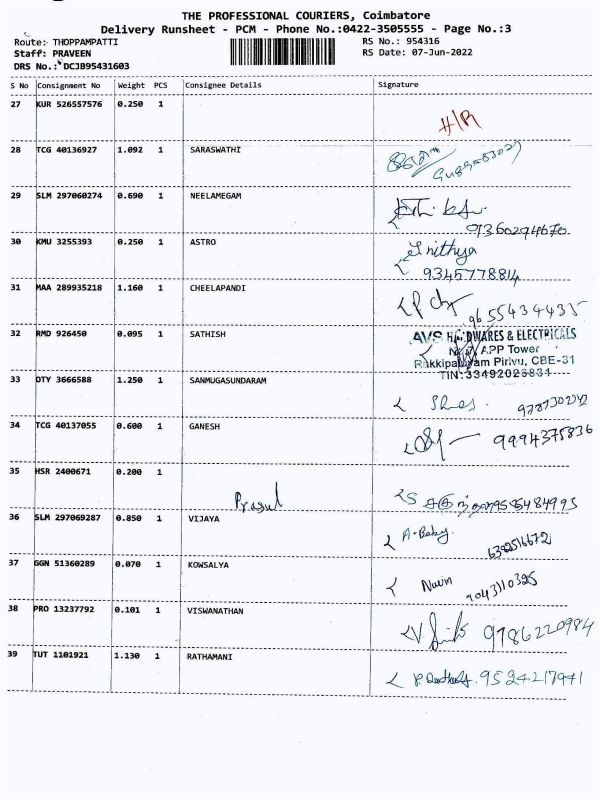 THE PROFESSIONAL COURIERS, Coimbatore
Delivery Runsheet - PCM - Phone No.:0422-3505555 - Page No.:3
Route:- THOPPAMPATTI RS No.: 954316
Staff: PRAVEEN RS Date: 07-Jun-2022
DRS No.: DCJB95431603
S No Consignment No Weight PCS Consignee Details Signature
27 KUR 526557576 0.250 1 H/R
28 TCG 40136927 1.092 1 SARASWATHI
29 SLM 297060274 0.690 1 NEELAMEGAM
9360294670
30 KMU 3255393 0.250 1 ASTRO Inithya
9345778814
31 MAA 289935218 1.160 1 CHEELAPANDI
9655434435
32 RMD 926450 0.095 1 SATHISH AVS HARDWARES & ELECTRICALS
APP Tower
Rakkipalayam Pirivu, CBE-31
TIN:33492026831
33 OTY 3666588 1.250 1 SANMUGASUNDARAM
34 TCG 40137055 0.600 1 GANESH 9994375836
35 HSR 2400671 0.200 1
Prasul
36 SLM 297069287 0.850 1 VIJAYA A. Baby
6382516672
37 GGN 51360289 0.070 1 KOWSALYA Navin
7043110325
38 PRO 13237792 0.101 1 VISWANATHAN 9786220984
39 TUT 1101921 1.130 1 RATHAMANI 9524217941